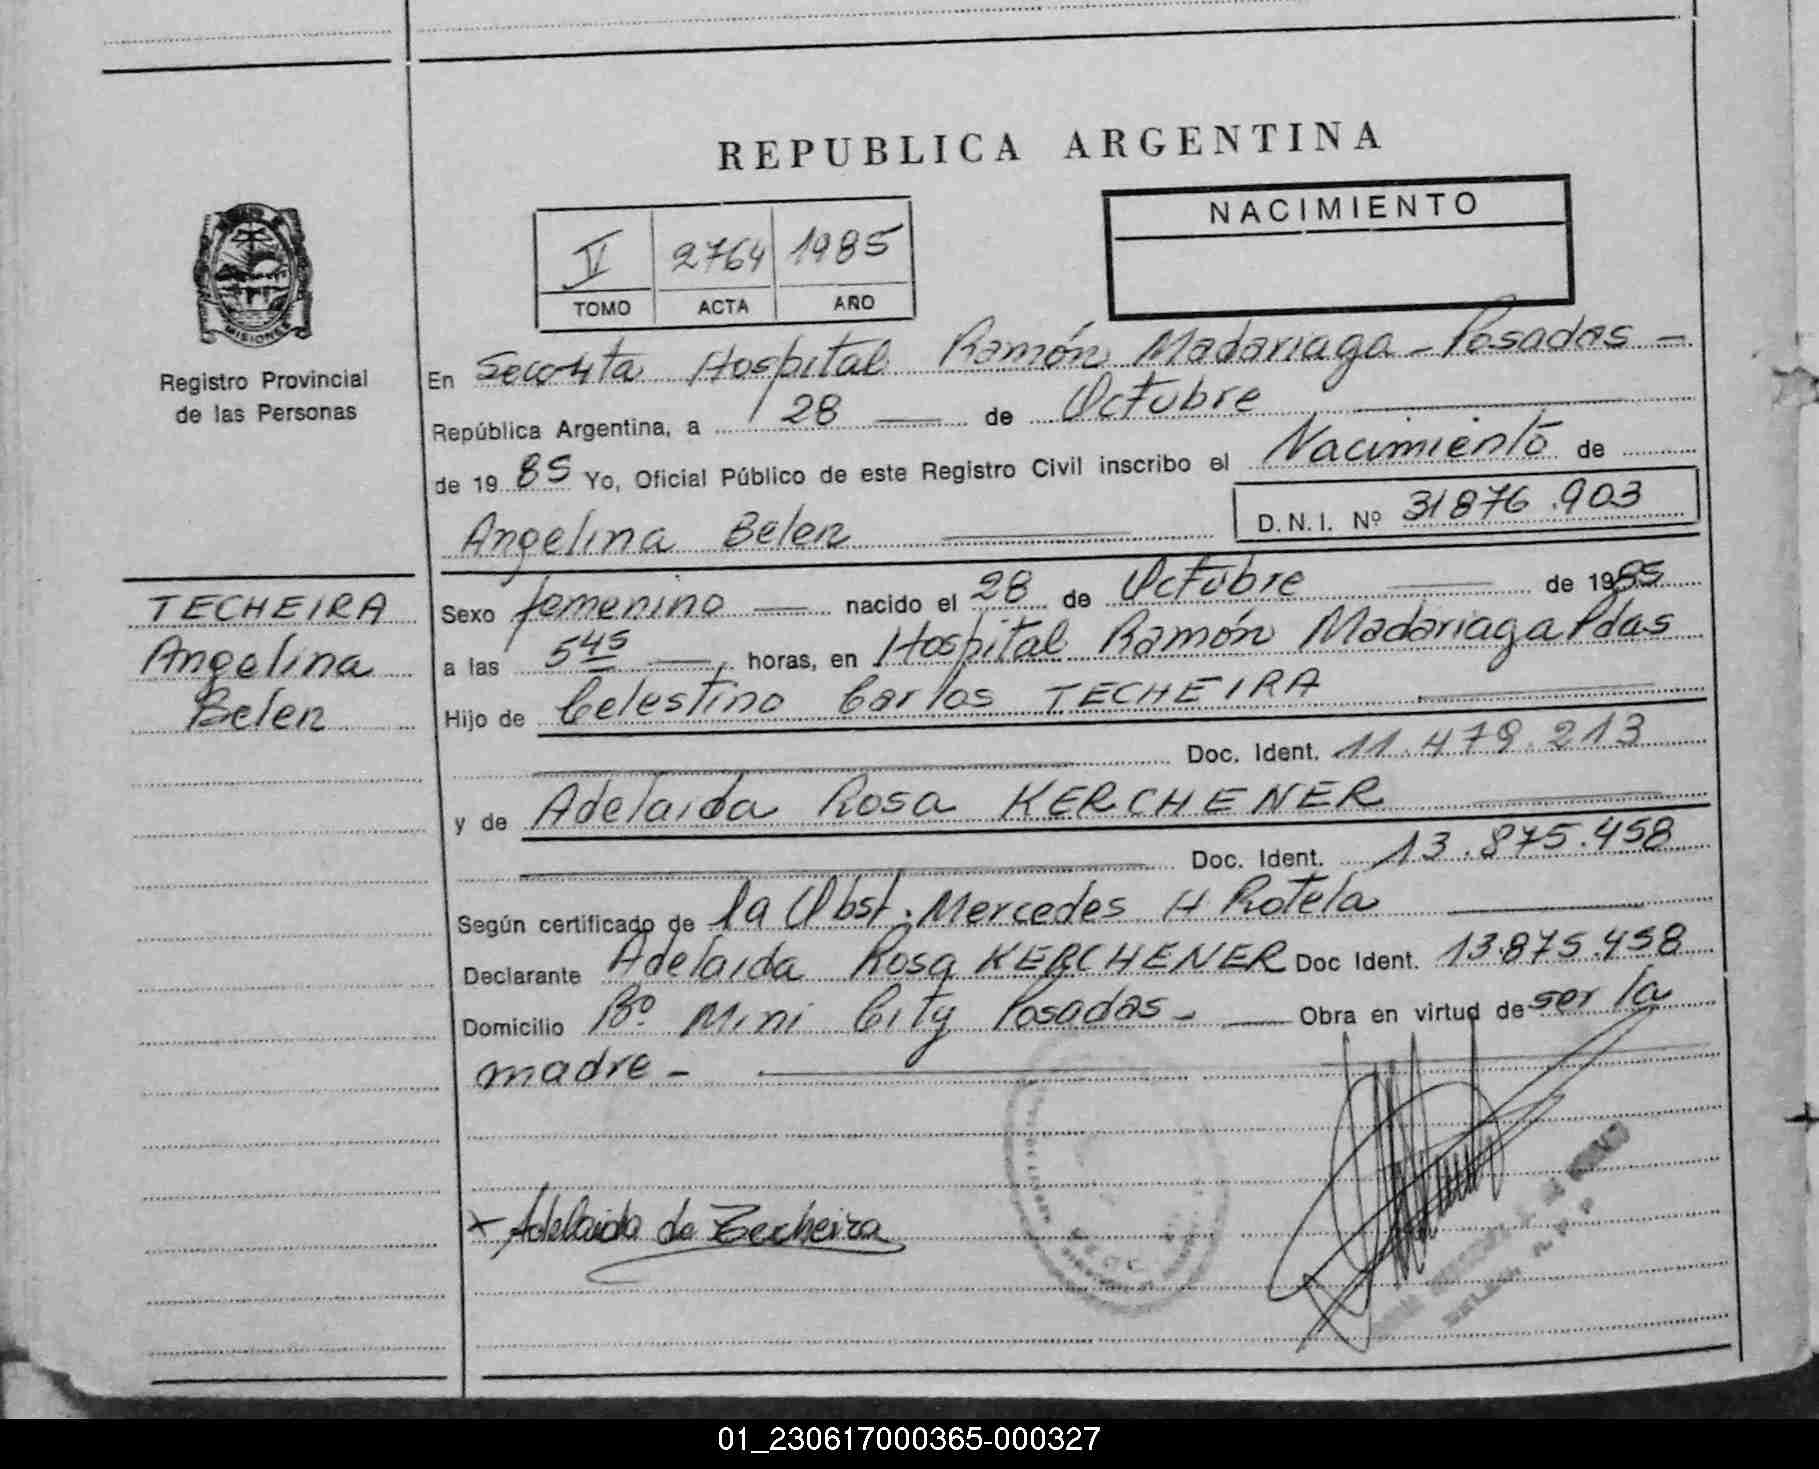 REPUBLICA ARGENTINA
NACIMIENTO
V 2764 1985
TOMO ACTA AÑO
MISIONES
Registro Provincial
de las Personas
En Hospital Ramón Madariaga - Posadas -
República Argentina, a 28 de Octubre
de 1985 Yo, Oficial Público de este Registro Civil inscribo el Nacimiento de
Angelina Belen D.N.I. Nº 31876.903
TECHEIRA
Angelina
Belen
Sexo femenino nacido el 28 de Octubre de 1985
a las 5 45 horas, en Hospital Ramón Madariaga Pdas
Hijo de Celestino Carlos TECHEIRA
Doc. Ident. 11.479.213
y de Adelaida Rosa KERCHENER
Doc. Ident. 13.875.458
Según certificado de la Obst. Mercedes H Rotela
Declarante Adelaida Rosa KERCHENER Doc Ident. 13.875.458
Domicilio Bº. Mini City Posadas - Obra en virtud de ser la
madre -
x Adelaida de Techeira
01_230617000365-000327